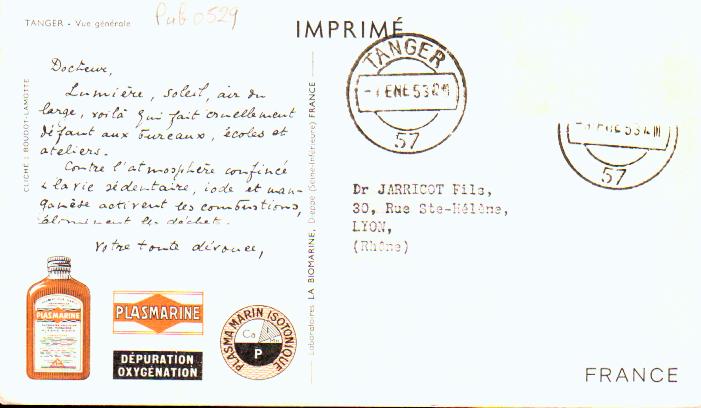 TANGER - Vue générale
Pub 0529
IMPRIMÉ
CLICHÉ : BOUDOT-LAMOTTE
Docteur,
Lumière, soleil, air du
large, voilà qui fait cruellement
défaut aux bureaux, écoles et
ateliers.
Contre l'atmosphère confinée
& la vie sédentaire, iode et man-
ganèse activent les combustions,
éliminent les déchets.
Votre toute dévouée,
PLASMARINE
PLASMARINE
DÉPURATION
OXYGÉNATION
PLASMA MARIN ISOTONIQUE
Ca
P
Laboratoires LA BIOMARINE, Dieppe (Seine-Inférieure) FRANCE
TANGER
ENE 53
57
57
Dr JARRICOT Fils,
30, Rue Ste-Hélène,
LYON,
(Rhône)
FRANCE